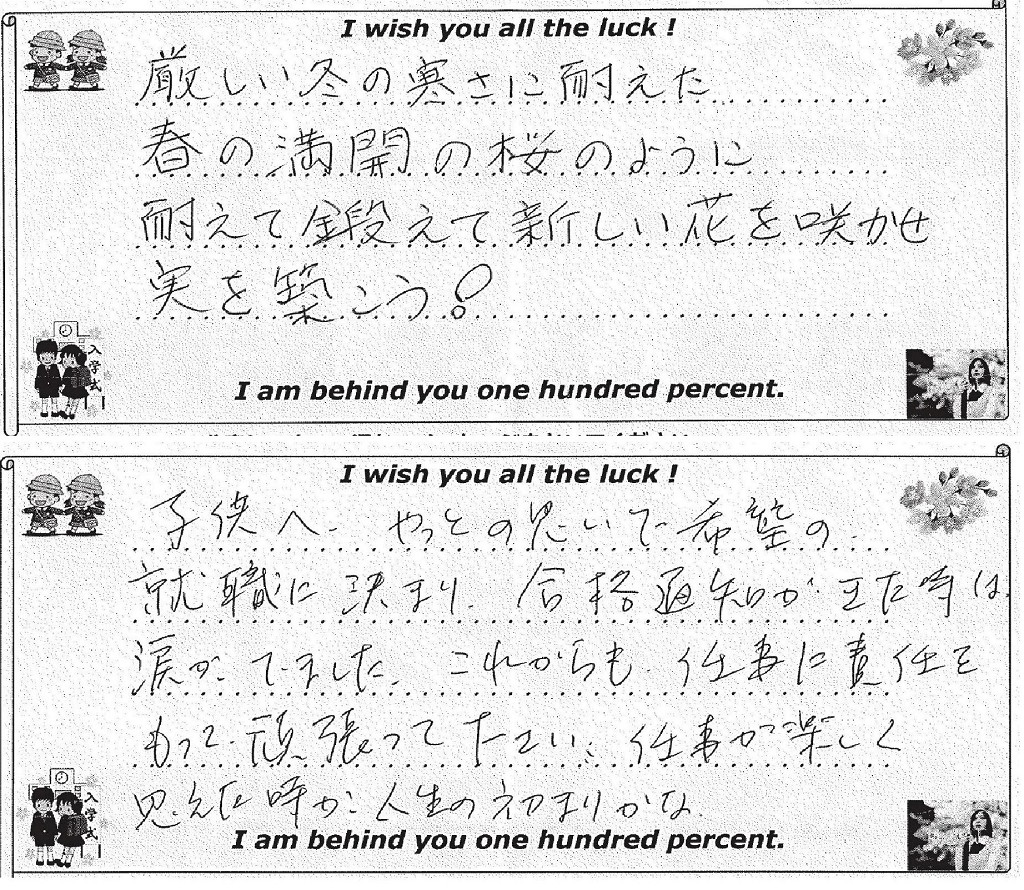 I wish you all the luck !
厳しい冬の寒さに耐えた
春の満開の桜のように
耐えて鍛えて新しい花を咲かせ
実を築こう!
入学式
I am behind you one hundred percent.
I wish you all the luck !
子供へ. やっとの思いで希望の
就職に決まり. 合格通知が来た時は
涙がでました. これからも仕事に責任を
もって頑張って下さい. 仕事が楽しく
思えた時が人生の初まりかな
入学式
I am behind you one hundred percent.